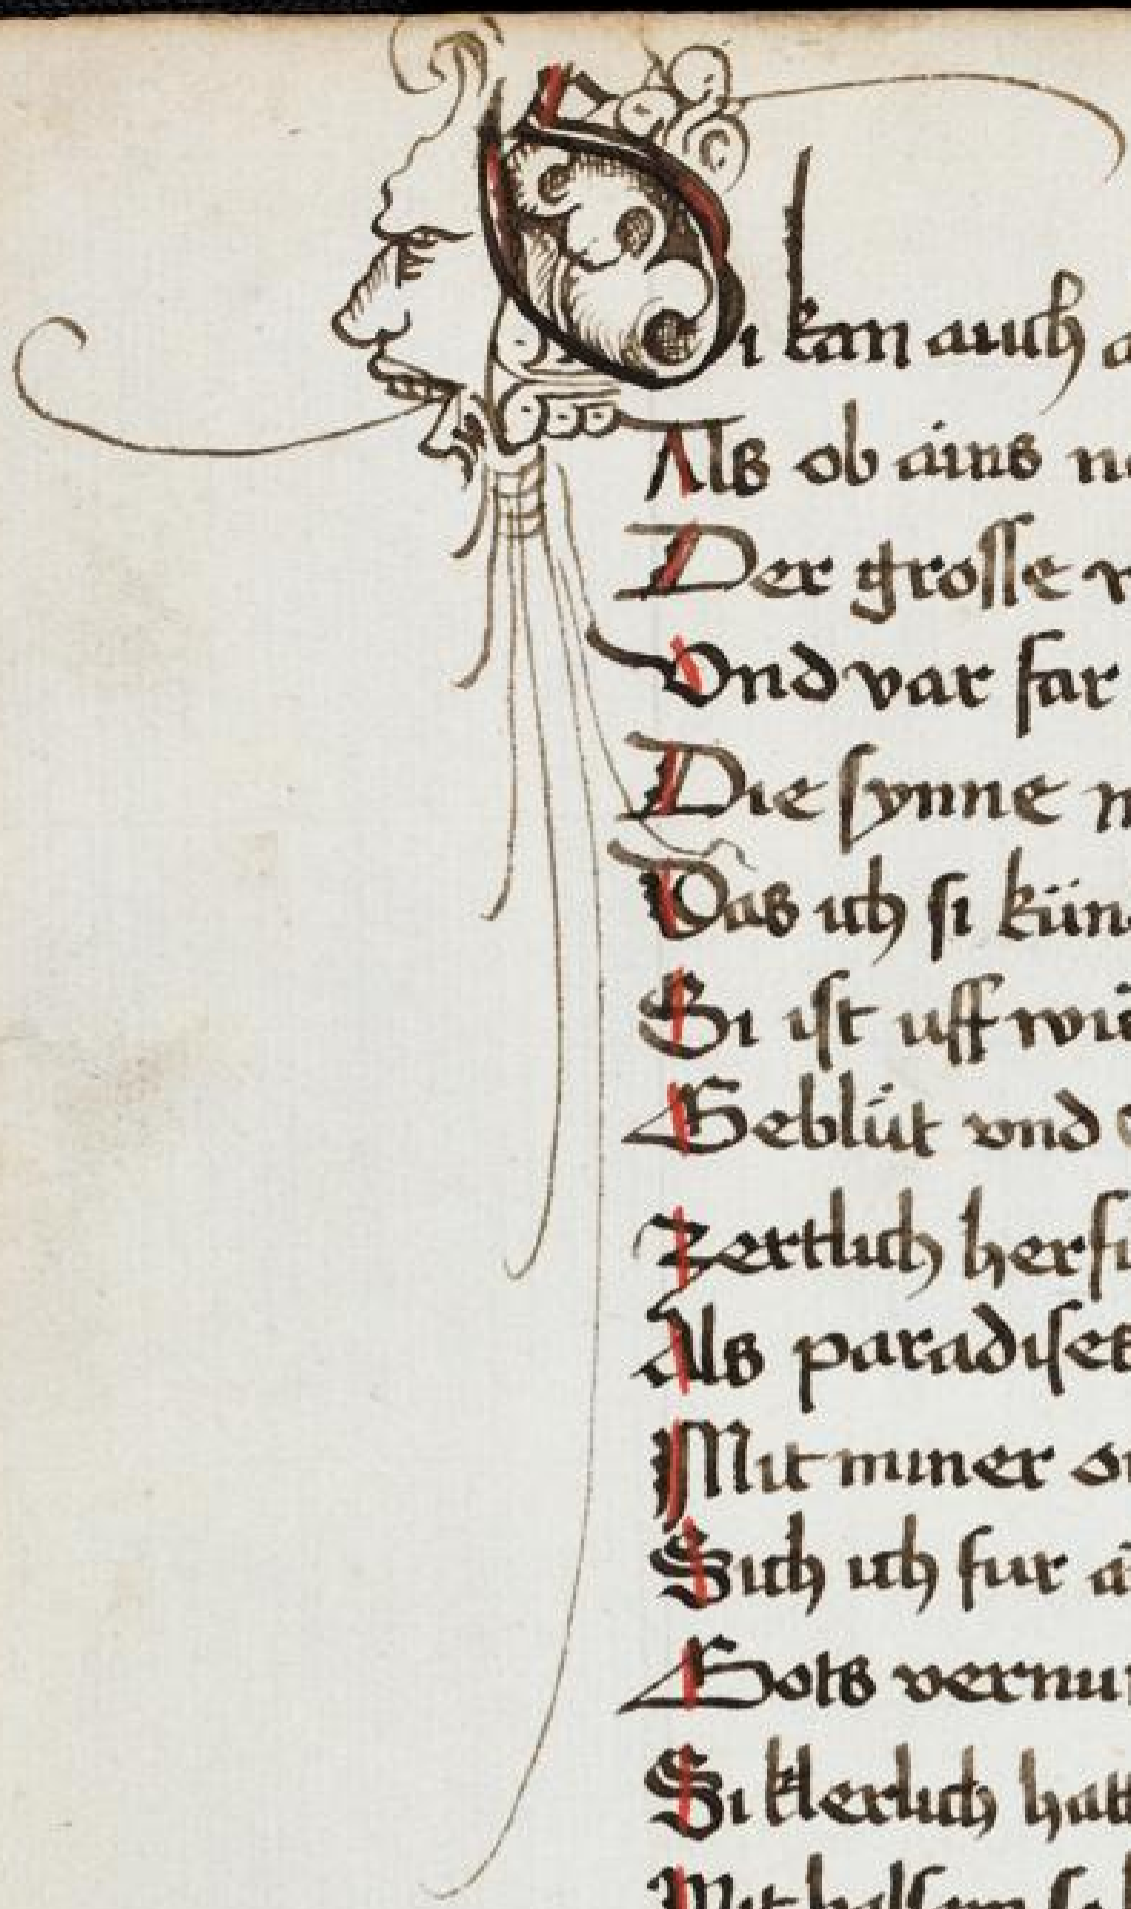 Si kan auch
Als ob ains
Der grosse
Vnd var far
Die synne
Das ich si kün
Si ist uff
Geblüt vnd
Zertlich
Als paradises
Mit miner
Sich ich fur
Gots
Si klerlich
Mit